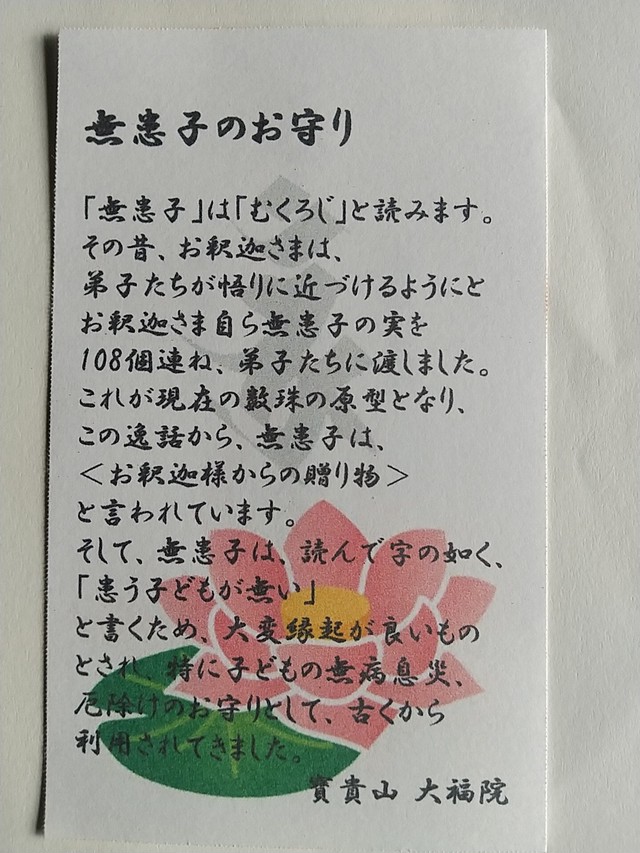 無患子のお守り
「無患子」は「むくろじ」と読みます。
その昔、お釈迦さまは、
弟子たちが悟りに近づけるようにと
お釈迦さま自ら無患子の実を
108個連ね、弟子たちに渡しました。
これが現在の数珠の原型となり、
この逸話から、無患子は、
＜お釈迦様からの贈り物＞
と言われています。
そして、無患子は、読んで字の如く、
「患う子どもが無い」
と書くため、大変縁起が良いもの
とされ、特に子どもの無病息災、
厄除けのお守りとして、古くから
利用されてきました。
寳貴山 大福院